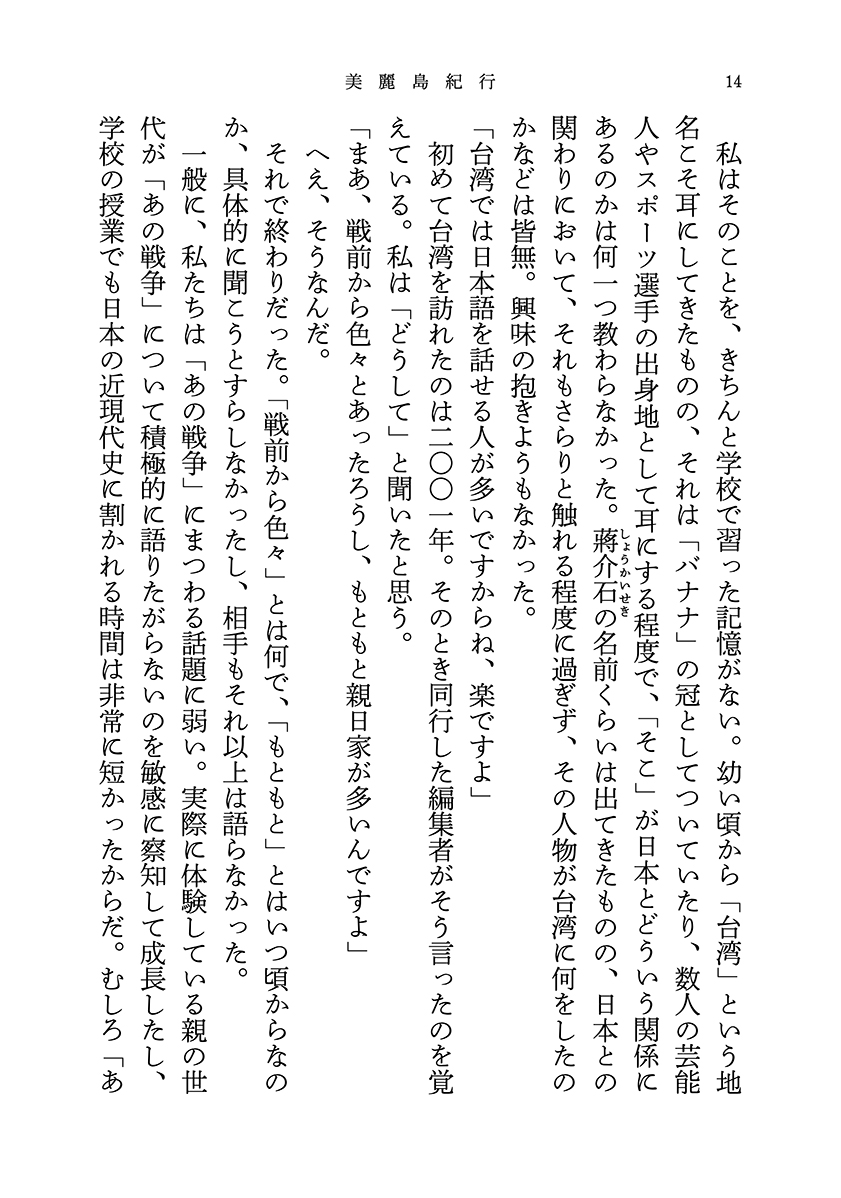 美麗島紀行
14
私はそのことを、きちんと学校で習った記憶がない。幼い頃から「台湾」という地
名こそ耳にしてきたものの、それは「バナナ」の冠としてついていたり、数人の芸能
人やスポーツ選手の出身地として耳にする程度で、「そこ」が日本とどういう関係に
あるのかは何一つ教わらなかった。蔣介石の名前くらいは出てきたものの、日本との
しょうかいせき
関わりにおいて、それもさらりと触れる程度に過ぎず、その人物が台湾に何をしたの
かなどは皆無。興味の抱きようもなかった。
「台湾では日本語を話せる人が多いですからね、楽ですよ」
初めて台湾を訪れたのは二〇〇一年。そのとき同行した編集者がそう言ったのを覚
えている。私は「どうして」と聞いたと思う。
「まあ、戦前から色々とあったろうし、もともと親日家が多いんですよ」
へえ、そうなんだ。
それで終わりだった。「戦前から色々」とは何で、「もともと」とはいつ頃からなの
か、具体的に聞こうとすらしなかったし、相手もそれ以上は語らなかった。
一般に、私たちは「あの戦争」にまつわる話題に弱い。実際に体験している親の世
代が「あの戦争」について積極的に語りたがらないのを敏感に察知して成長したし、
学校の授業でも日本の近現代史に割かれる時間は非常に短かったからだ。むしろ「あ